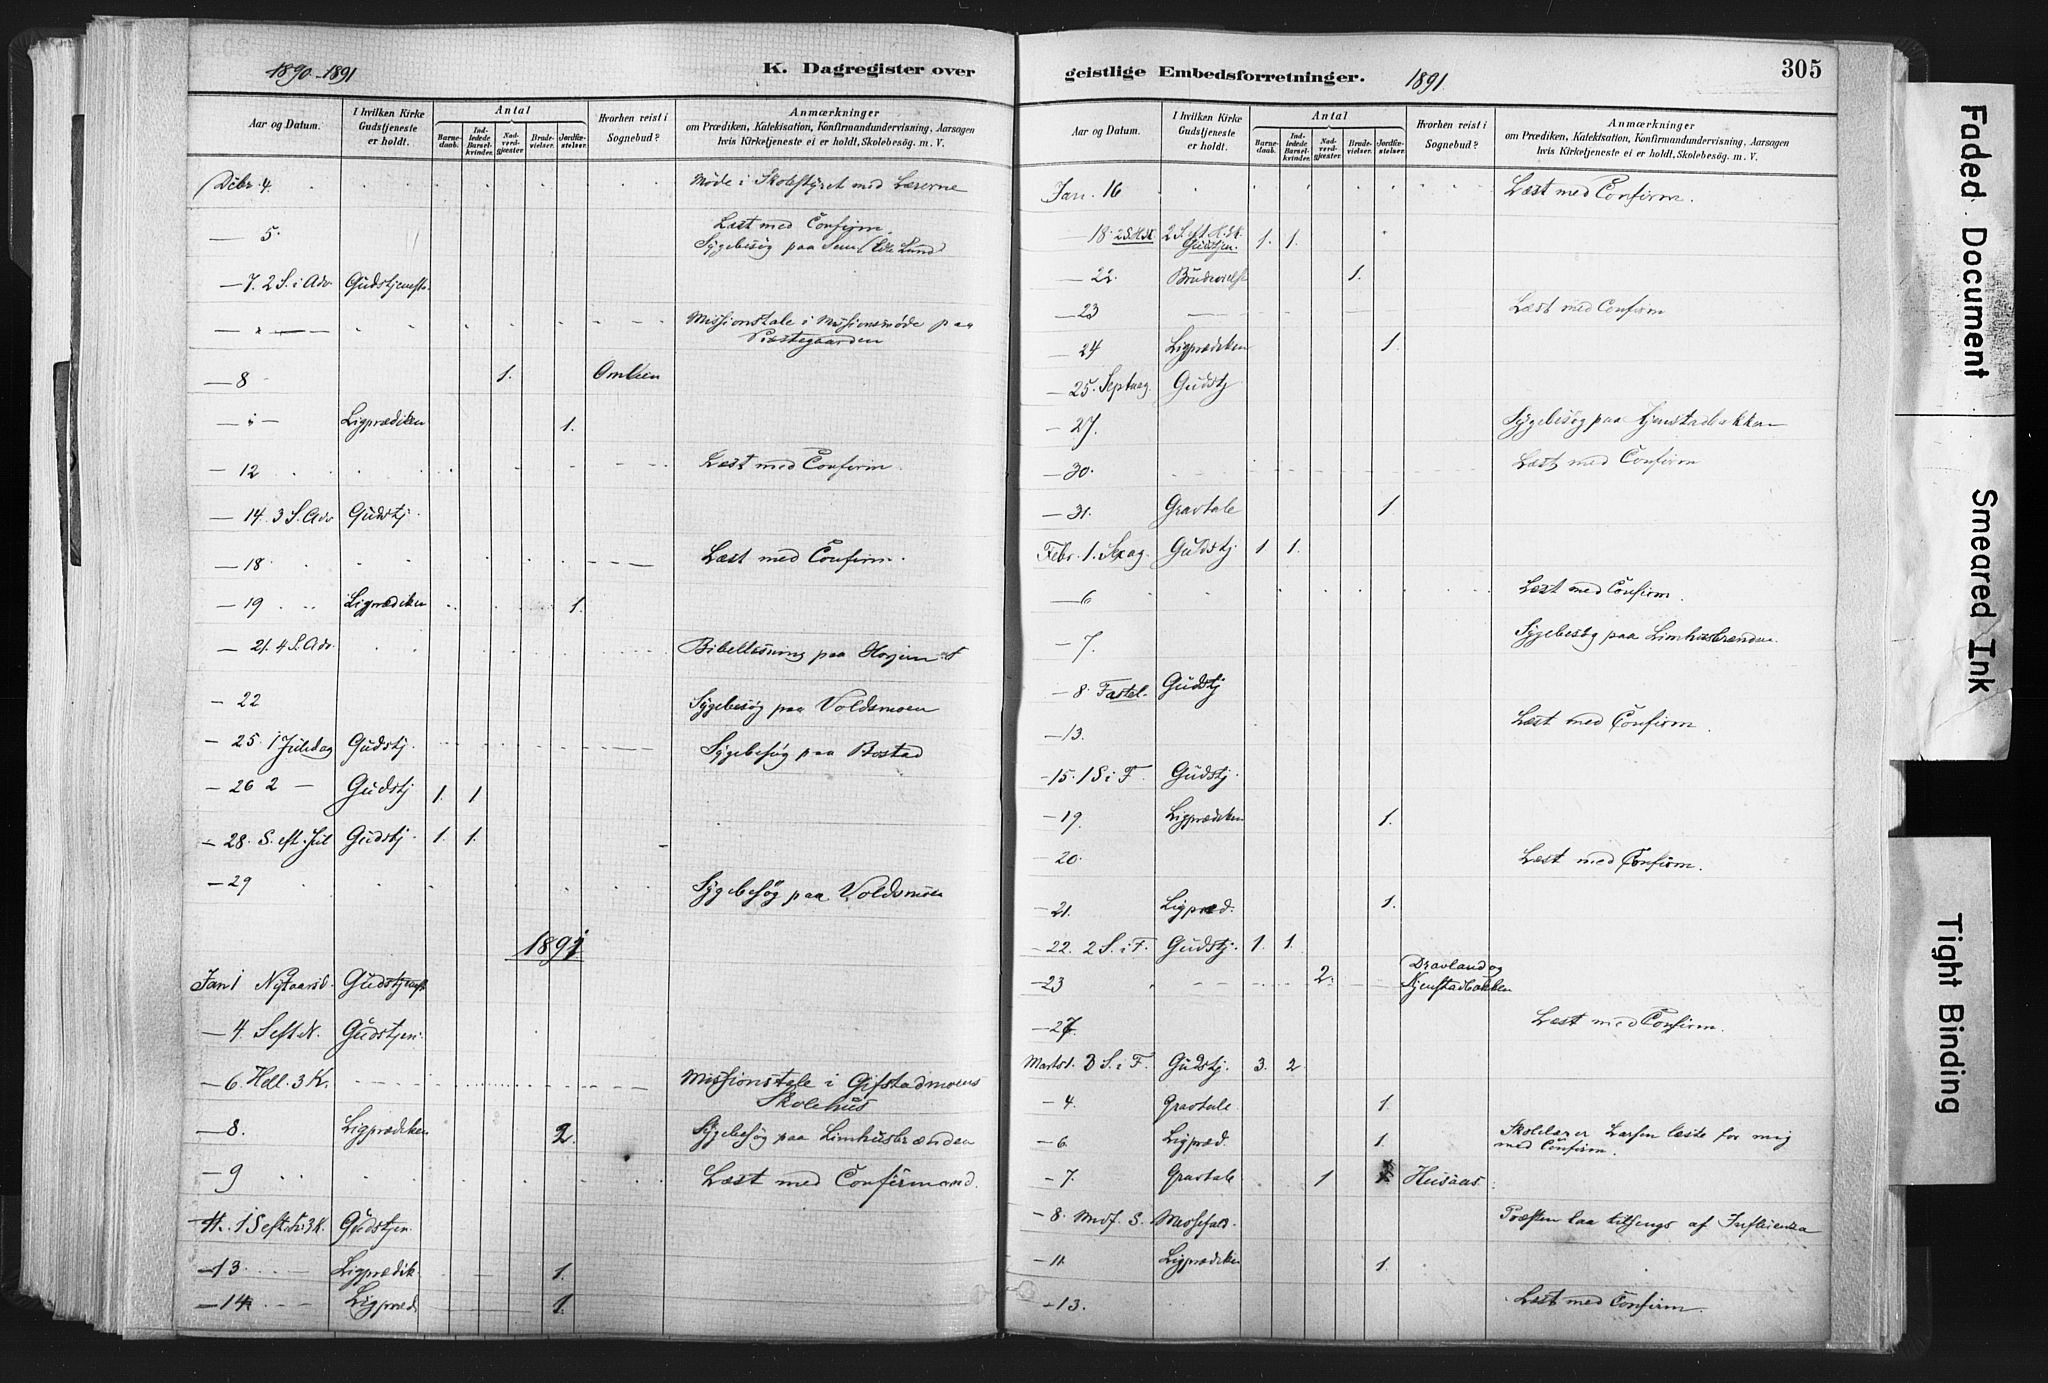 1890-1891
K. Dagregister over
Aar og Datum.
I hvilken Kirke Gudstjeneste er holdt.
Antal
Barne-daab.
Ind-ledede Barsel-kvinder.
Nad-verd-gjester.
Brude-vielser.
Jordfæ-stelser.
Hvorhen reist i Sognebud?
Anmærkninger
om Prædiken, Katekisation, Konfirmandundervisning, Aarsagen
hvis Kirketjeneste ei er holdt, Skolebesøg. m. V.
Debr. 4. Møde i Skolestyret med Læserne
— 5. Læst med Confirm.
Sygebesøg paa Sem
— 7. 2 S. i Adv Gudstjeneste
— " — Missionstale i Missionsmøde paa
Præstegaarden
— 8 1.
— " — Ligprædiken 1.
— 12 Læst med Confirm
— 14. 3 S. Adv Gudstj.
— 18 Læst med Confirm.
— 19 Ligprædiken 1.
— 21. 4 S. Adv. Bibellæsning paa
— 22 Sygebesøg paa Voldsmoen
— 25. 1 Juledag Gudstj. Sygebesøg paa Bostad
— 26 2 — Gudstj 1. 1
— 28. S. eft. Jul Gudstj. 1. 1.
— 29 Sygebesøg paa Voldsmoen
1891
Jan 1 Nytaarsd. Gudstjenest
— 4. S eft N. Gudstjen.
— 6. Hell. 3 K. Missionstale i Gifstadmoens
Skolehus
— 8. Ligprædiken 2. Sygebesøg paa Limhusbrænden
— 9 Læst med Confirmand.
— 11. 1 S eft h. 3 K. Gudstjen
— 13 Ligprædik. 1.
— 14 Ligpræd 1.
geistlige Embedsforretninger.
1891.
305
Aar og Datum.
I hvilken Kirke Gudstjeneste er holdt.
Antal
Barne-daab.
Ind-ledede Barsel-kvinder.
Nad-verd-gjester.
Brude-vielser.
Jordfæ-stelser.
Hvorhen reist i Sognebud?
Anmærkninger
om Prædiken, Katekisation, Konfirmandundervisning, Aarsagen
hvis Kirketjeneste ei er holdt, Skolebesøg. m. V.
Jan. 16 Læst med Confirm.
— 18. 2 S. eft H. 3 K. Gudstjen. 1. 1.
— 22. Brudevielse 1.
— 23 Læst med Confirm
— 24 Ligprædiken 1.
— 25. Septuag. Gudstj
— 27. Sygebesøg paa Kjenstadbakken
— 30. Læst med Confirm
— 31. Gravtale 1
Febr. 1. Sexag. Gudstj 1 1.
— 6 Læst med Confirm.
— 7. Sygebesøg paa Limhusbrænden
— 8. Fastel. Gudstj
— 13. Læst med Confirm.
— 15. 1 S i F. Gudstj.
— 19. Ligprædiken 1.
— 20. Læst med Confirm.
— 21. Ligpræd. 1.
— 22. 2 S. i F. Gudstj. 1. 1.
— 23 2. Dravland og
Kjenstadbakken
— 27. Læst med Confirm.
Marts 1. 3 S. i F. Gudstj. 3. 2
— 4. Gravtale. 1.
— 6. Ligpræd. 1. Skolelærer Larsen læste for mig
med Confirm.
— 7. Gravtale 1 Husaas.
— 8. Midf. S. Messefald. Præsten laa tilsengs af Influenza
— 11. Ligprædiken 1.
— 13. Læst med Confirm.
Faded Document
Smeared Ink
Tight Binding